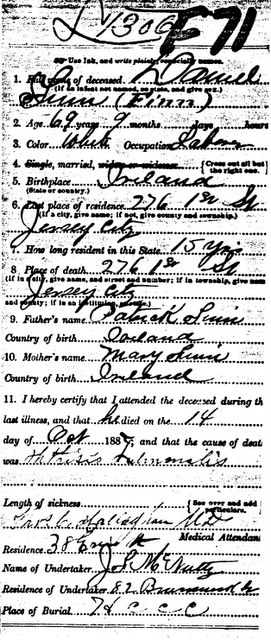 L 1306 F71
Use Ink, and write plainly, especially names.
1. Full name of deceased. Daniel
(If an infant not named, so state, and give sex.)
Linn (Finn)
2. Age 69 years 9 months days hours
3. Color White Occupation Labor
4. Single, married, widow or widower. {Cross out all but the right one.}
5. Birthplace Ireland
(State or country.)
6. Last place of residence. 276 1st St
(If a city, give name; if not, give county and township.)
Jersey City
7. How long resident in this State. 15 yrs
8. Place of death. 276 1st St
(If in city, give name, and street and number; if in township, give name
and county; if in an institution, so state.)
Jersey City
9. Father's name. Patrick Linn
Country of birth Ireland
10. Mother's name. Mary Linn
Country of birth Ireland
11. I hereby certify that I attended the deceased during th
last illness, and that he died on the 14
day of Oct 188 ; and that the cause of deat
was Phthisis Pulmonalis
Length of sickness {See over and add particulars.
M D
Medical Attendan
Residence. 38 Erie St
Name of Undertaker Jos. McNulty
Residence of Undertaker 82 Brunswick
Place of Burial. H C C